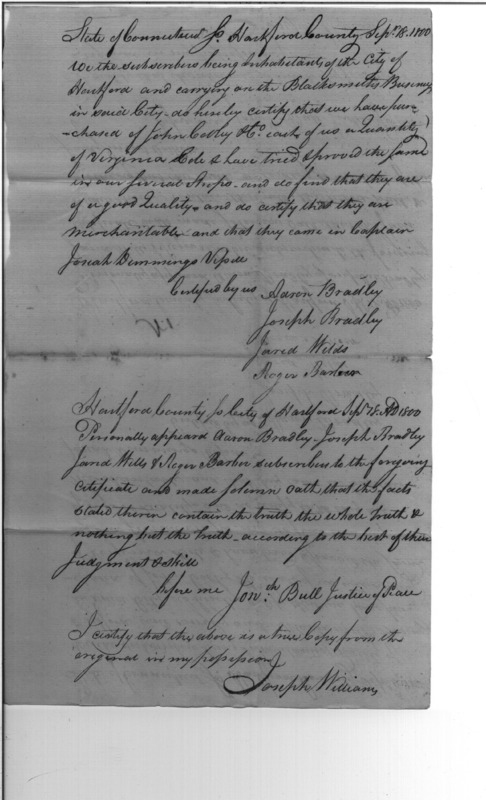 State of Connecticut Ss Hartford County Sept. 18. 1800
We the subscribers being Inhabitants of the City of
Hartford and carrying on the Blacksmiths Business
in said City - do hereby certify that we have pur-
-chased of John & Co. each of us a Quantity
of Virginia Cole & have tried & proved the same
in our several Shops - and do find that they are
of a good Quality and do certify that they are
merchantable and that they came in Captain
Josiah Vessell
Certified by us Aaron Bradley
Joseph Bradley
Jared Wells
Roger Barber
Hartford County Ss City of Hartford Sept. 18. AD 1800
Personally appeard Aaron Bradley - Joseph Bradley
Jared Wells & Roger Barber subscribers to the foregoing
certificate and made solemn oath that the facts
stated therein contain the truth the whole truth &
nothing but the truth - according to the best of their
Judgment & Skill
before me Jonth. Bull Justice of Peace
I certify that the above is a true Copy from the
original in my possession
Joseph Williams